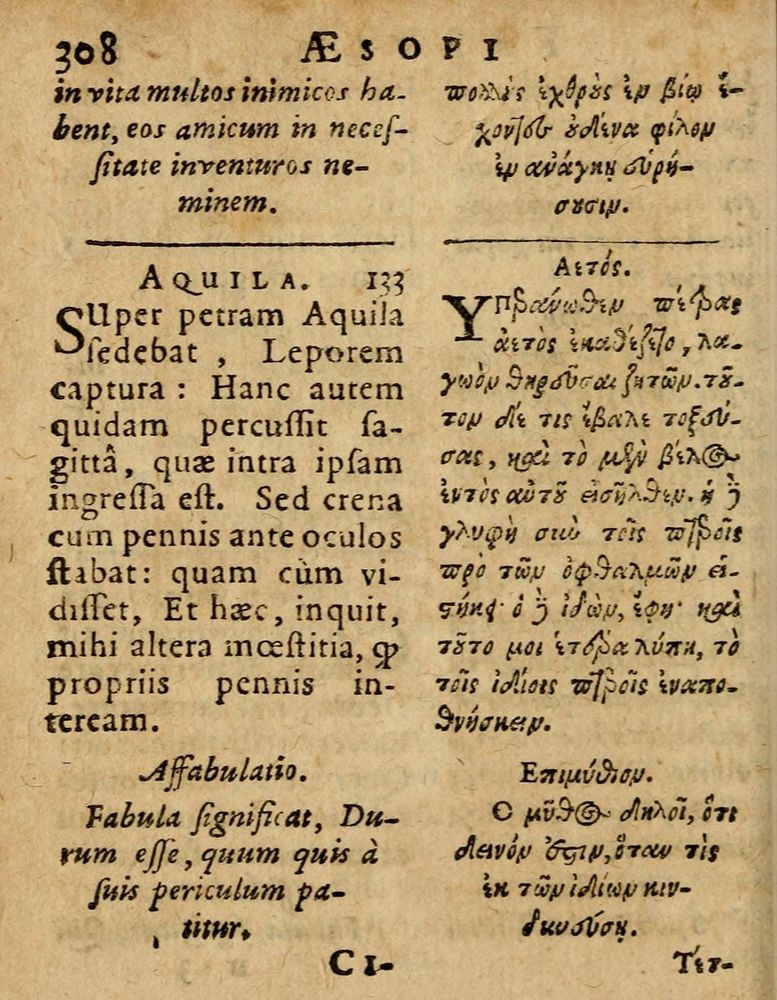 308 ÆSOPI
in vita multos inimicos ha-
bent, eos amicum in neceſ-
ſitate inventuros ne-
minem.
AQUILA. 133
SUper petram Aquila
ſedebat , Leporem
captura : Hanc autem
quidam percuſſit ſa-
gittâ, quæ intra ipſam
ingreſſa eſt. Sed crena
cum pennis ante oculos
ſtabat: quam cùm vi-
diſſet, Et hæc, inquit,
mihi altera mœſtitia, ꝙ
propriis pennis in-
teream.
Affabulatio.
Fabula ſignificat, Du-
rum eſſe, quum quis à
ſuis periculum pa-
titur.
CI-
πολλὲς ἐχθροὺς ἐν βίῳ ἔ-
χοντες οὐδένα φίλον
ἐν ἀνάγκῃ εὑρή-
σουσιν.
Αετός.
ΥΠεράνωθεν πέτρας
ἀετὸς ἐκαθέζετο, λα-
γωὸν θηρεῦσαι ζητῶν. τοῦ-
τον δέ τις ἔβαλε τοξεύ-
σας, καὶ τὸ μὲν βέλος
ἐντὸς αὐτοῦ εἰσῆλθεν. ἡ δὲ
γλυφὴ σὺν τοῖς πτεροῖς
πρὸ τῶν ὀφθαλμῶν εἱ-
στήκει· ὁ δὲ ἰδὼν, ἔφη· καὶ
τοῦτο μοι ἑτέρα λύπη, τὸ
τοῖς ἰδίοις πτεροῖς ἐναπο-
θνήσκειν.
Επιμύθιον.
Ο μῦθος δηλοῖ, ὅτι
δεινόν ἐστιν, ὅταν τὶς
ἐκ τῶν ἰδίων κιν-
δυνεύσῃ.